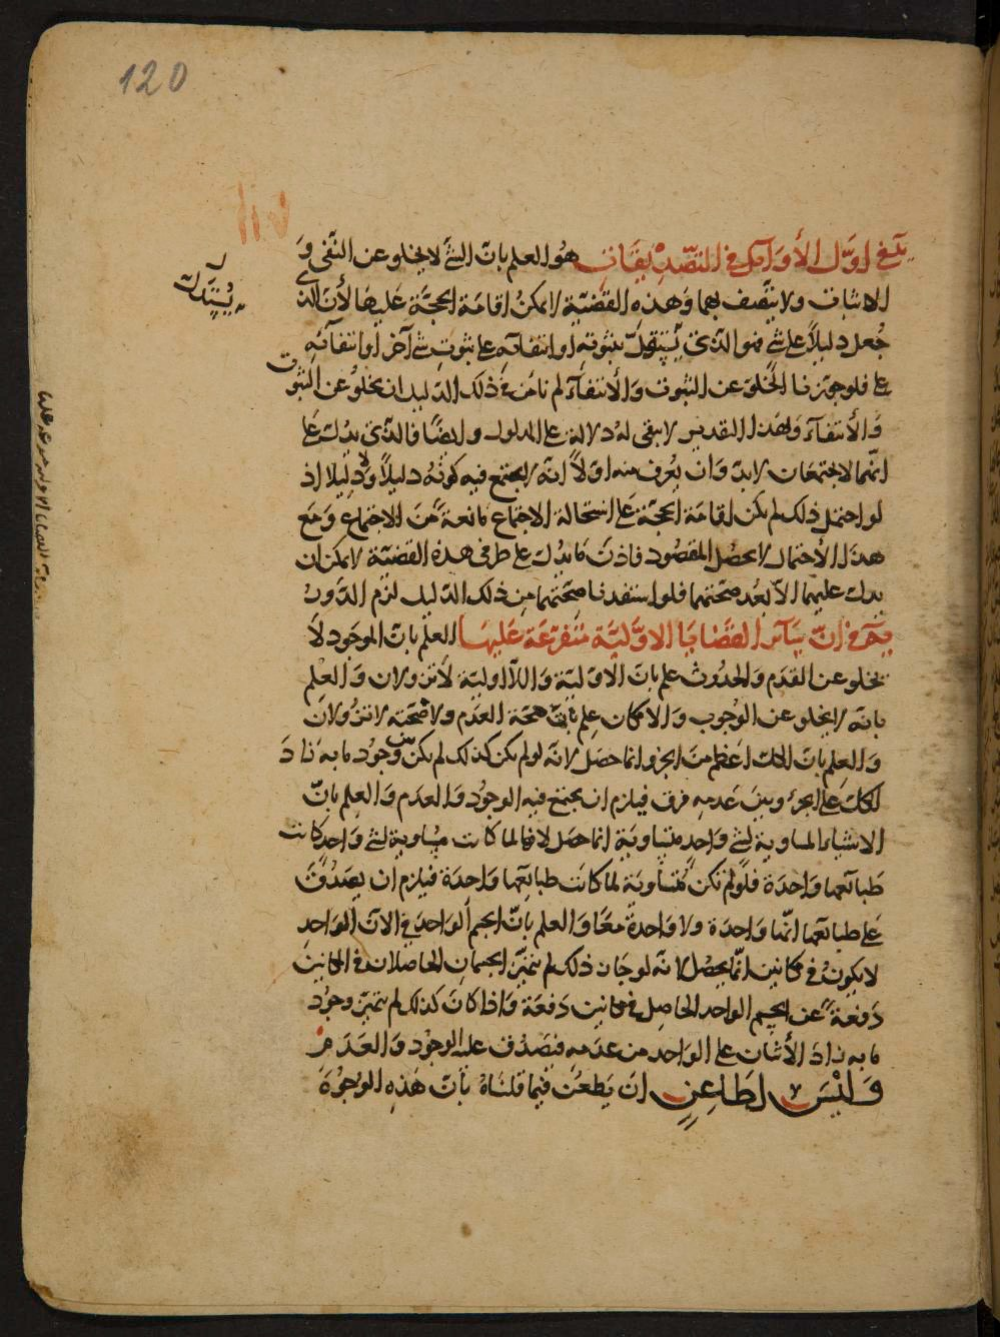 120
في اول الأوايل في التصديقات هو العلم بان الشي لا يخلو عن النفي و
الاثبات ولا يتصف بهما وهذه القضية لا يمكن اقامة الحجة عليها لأن الذي
يستدل
جعل دليلا على شي فهو الذي يستدل بثبوته او انتفائه على ثبوت شي آخر او انتفائه
على فلو جوزنا الخلو عن الثبوت والأنتفاء لم نامن في ذلك الدليل ان يخلو عن الثبوت
والأنتفاء وبهذا التقدير لا يبقى له دلالة على المدلول وايضا فالذي يدل على
انهما لا يجتمعان لا بد وان يعرف منه اولا انه لا يجتمع فيه كونه دليلا ولا دليلا اذ
لو احتمل ذلك لم تكن اقامة الحجة على استحالة الاجتماع مانعة من الاجتماع ومع
هذا الأحتمال لا يحصل المقصود فاذن ما يدل على طرفي هذه القضية لا يمكن ان
يدل عليهما الا بعد صحتهما فلو استفدنا صحتهما من ذلك الدليل لزم الدور
في ان سائر القضايا الاولية متفرعة عليها العلم بان الموجود لا
يخلو عن القدم والحدوث علم بان الاولية واللااولية لا تزولان والعلم
بانه لا يخلو عن الوجوب والامكان علم بان صحة العدم ولا صحته لا تزولان
والعلم بان الكل اعظم من الجزو انما حصل لانه لو لم يكن كذلك لم يكن بين وجود ما به زاد
الكل على الجزء وبين عدمه فرق فيلزم ان يجتمع فيه الوجود والعدم والعلم بان
الاشياء المساوية لشي واحد متساوية انما حصل لانها لما كانت مساوية لشي واحد كانت
طبائعها واحدة فلو لم تكن متساوية لما كانت طبائعها واحدة فيلزم ان يصدق
على طبائعها انها واحدة ولا واحدة معا والعلم بان الجسم الواحد في الآن الواحد
لا يكون في مكانين انما يحصل لانه لو جاز ذلك لم يتميز الجسمان الحاصلان في المكانين
دفعة عن الجسم الواحد الحاصل في مكانين دفعة واذا كان كذلك لم يتميز وجود
ما به زاد الأثنان على الواحد من عدمه فيصدق عليه الوجود والعدم
وليس لطاعن ان يطعن فيما قلناه بان هذه الوجوه